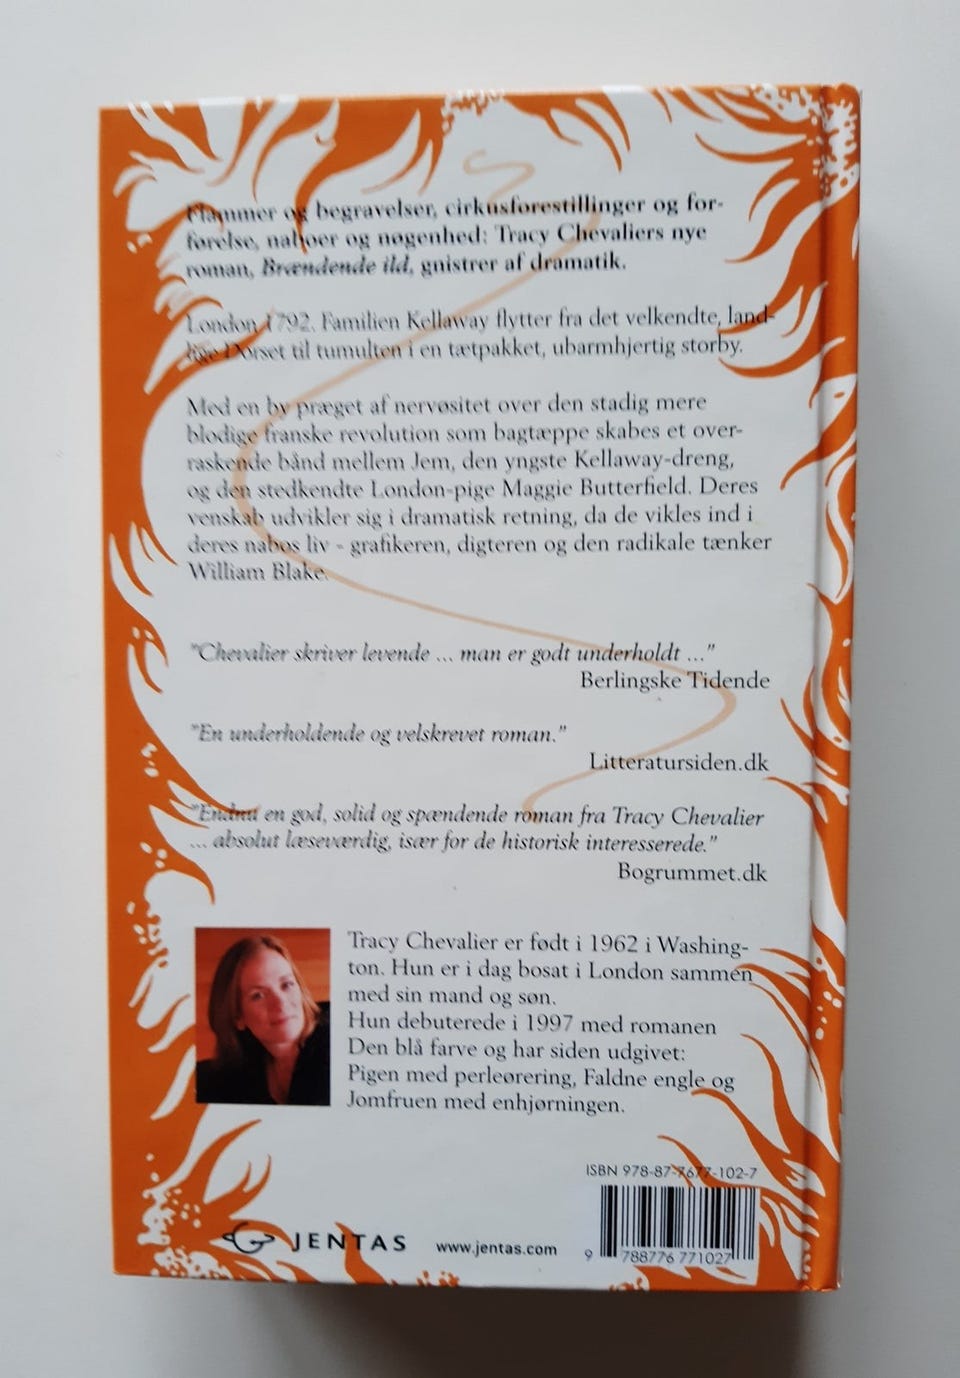 Flammer og begravelser, cirkusforestillinger og for-
førelse, naboer og nøgenhed: Tracy Chevaliers nye
roman, Brændende ild, gnistrer af dramatik.
London 1792. Familien Kellaway flytter fra det velkendte, land-
lige Dorset til tumulten i en tætpakket, ubarmhjertig storby.
Med en by præget af nervøsitet over den stadig mere
blodige franske revolution som bagtæppe skabes et over-
raskende bånd mellem Jem, den yngste Kellaway-dreng,
og den stedkendte London-pige Maggie Butterfield. Deres
venskab udvikler sig i dramatisk retning, da de vikles ind i
deres nabos liv - grafikeren, digteren og den radikale tænker
William Blake.
"Chevalier skriver levende ... man er godt underholdt ..."
Berlingske Tidende
"En underholdende og velskrevet roman."
Litteratursiden.dk
"Endnu en god, solid og spændende roman fra Tracy Chevalier
... absolut læseværdig, især for de historisk interesserede."
Bogrummet.dk
Tracy Chevalier er født i 1962 i Washing-
ton. Hun er i dag bosat i London sammen
med sin mand og søn.
Hun debuterede i 1997 med romanen
Den blå farve og har siden udgivet:
Pigen med perleørering, Faldne engle og
Jomfruen med enhjørningen.
ISBN 978-87-7677-102-7
JENTAS
www.jentas.com
9 788776 771027